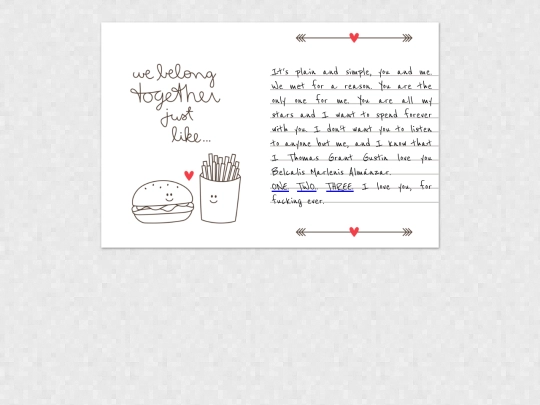 we belong
together
just
like...
It's plain and simple, you and me.
We met for a reason. You are the
only one for me. You are all my
stars and I want to spend forever
with you I don't want you to listen
to anyone but me, and I know that
I Thomas Grant Gustin love you
Belcalis Marlenis Almánzar.
ONE, TWO, THREE. I love you, for
fucking ever.